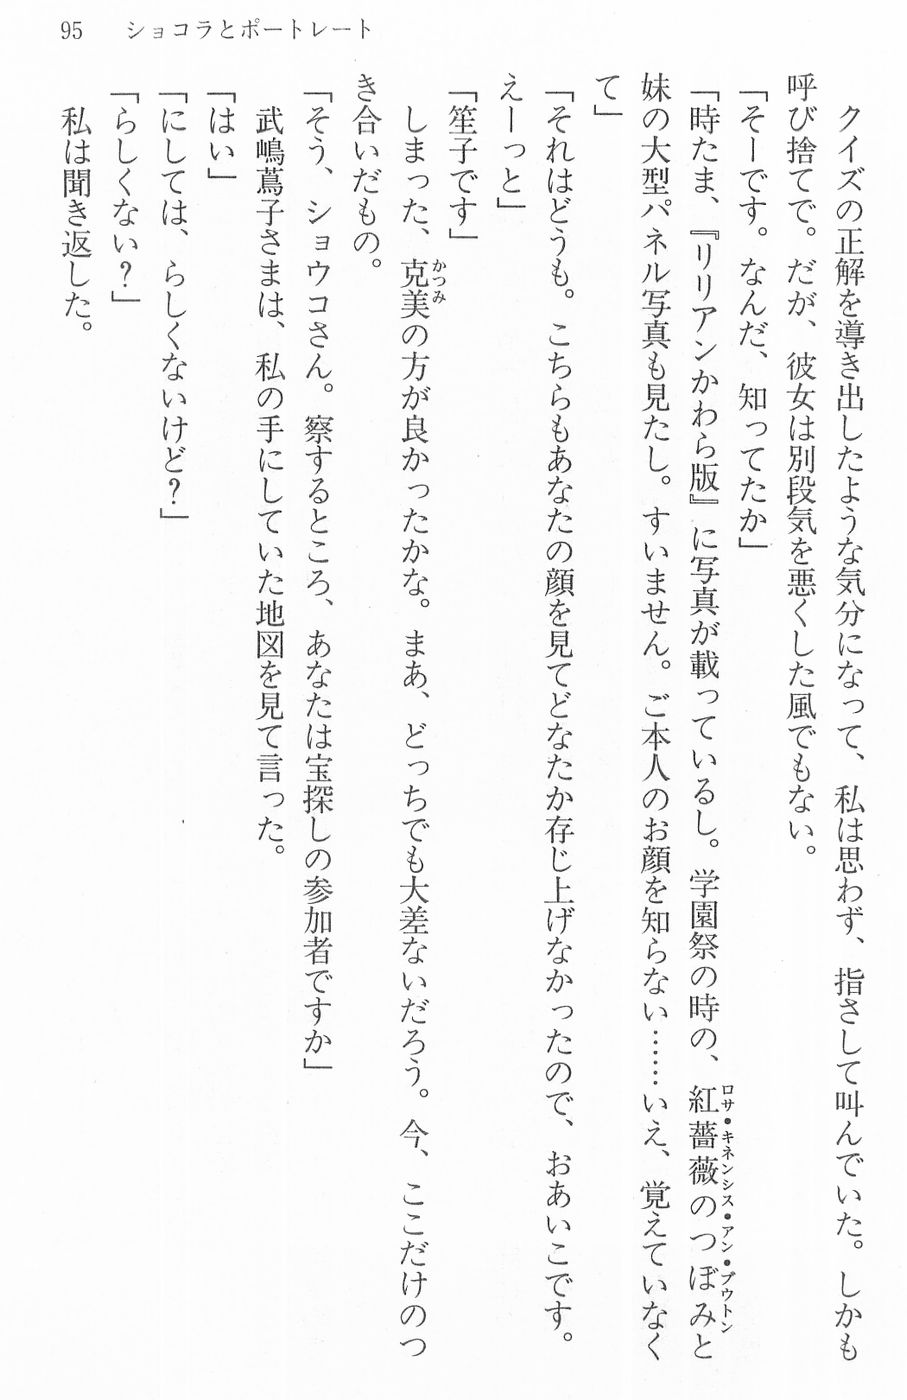 95　ショコラとポートレート
　クイズの正解を導き出したような気分になって、私は思わず、指さして叫んでいた。しかも
呼び捨てで。だが、彼女は別段気を悪くした風でもない。
「そーです。なんだ、知ってたか」
「時たま、『リリアンかわら版』に写真が載っているし。学園祭の時の、紅薔薇のつぼみと
ロサ・キネンシス・アン・ブウトン
妹の大型パネル写真も見たし。すいません。ご本人のお顔を知らない……いえ、覚えていなく
て」
「それはどうも。こちらもあなたの顔を見てどなたか存じ上げなかったので、おあいこです。
えーっと」
「笙子です」
　しまった、克美の方が良かったかな。まあ、どっちでも大差ないだろう。今、ここだけのつ
かつみ
き合いだもの。
「そう、ショウコさん。察するところ、あなたは宝探しの参加者ですか」
　武嶋蔦子さまは、私の手にしていた地図を見て言った。
「はい」
「にしては、らしくないけど？」
「らしくない？」
　私は聞き返した。